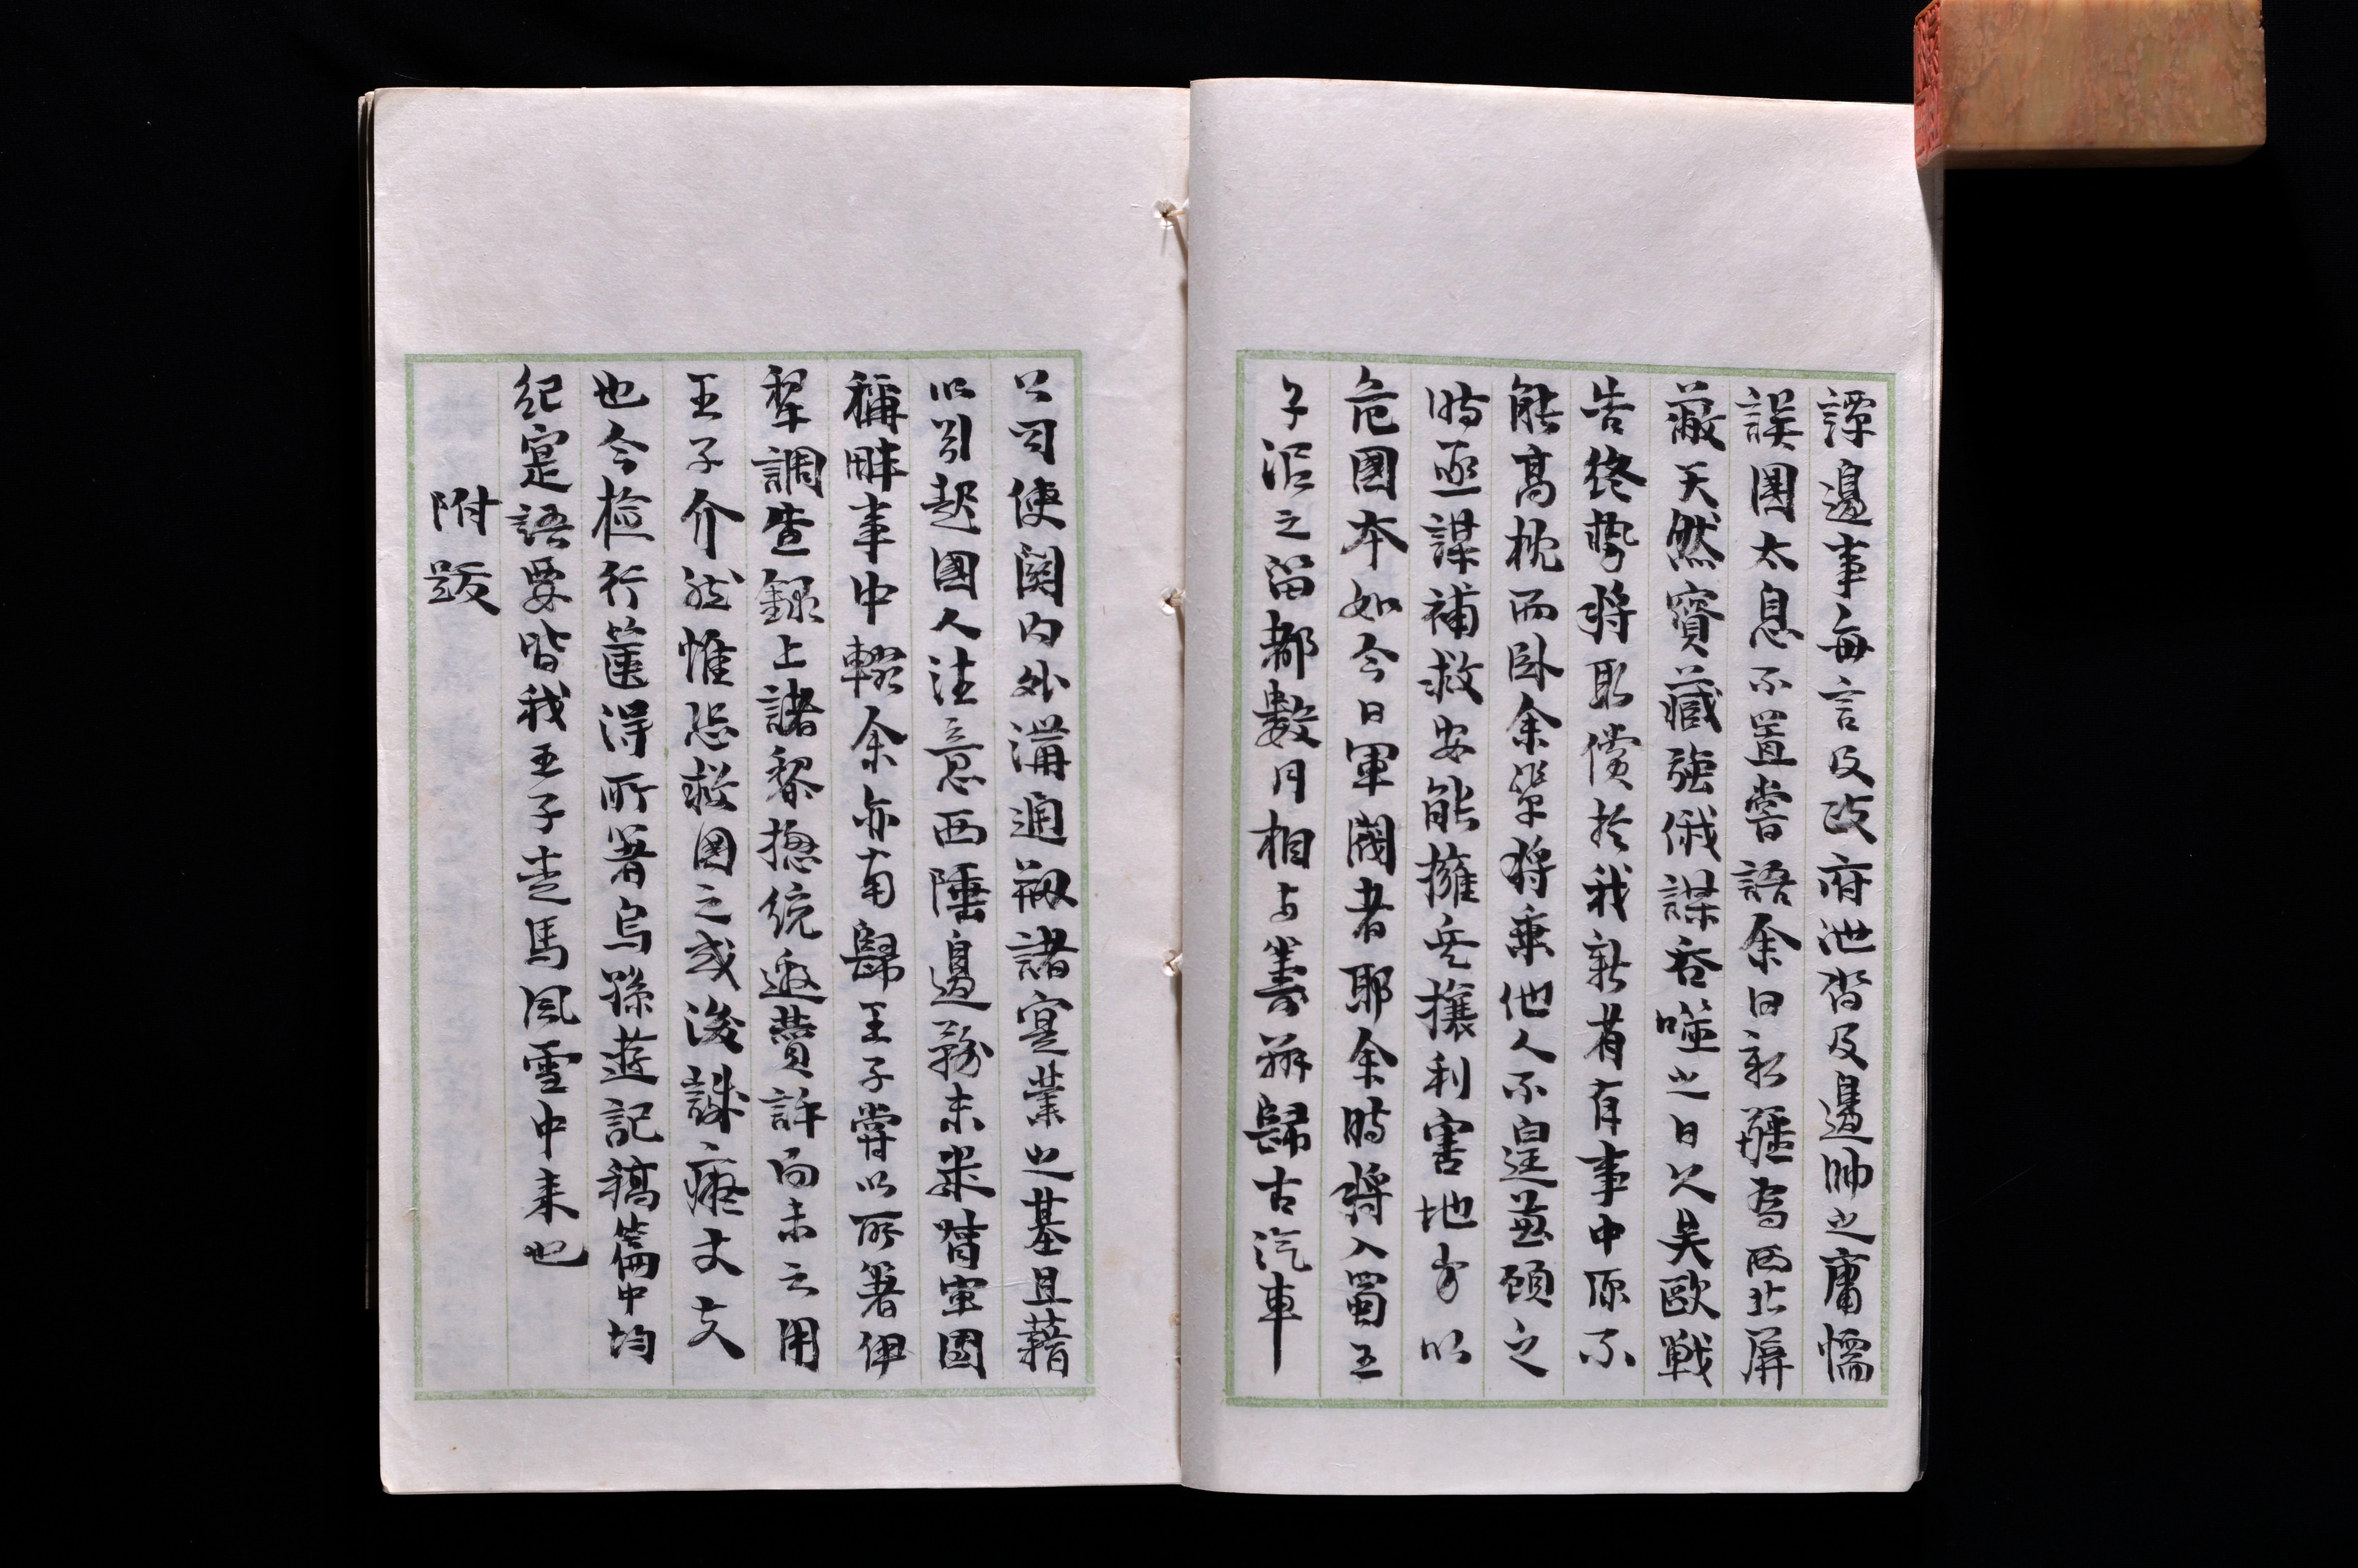 譚邊事每言及政府泄沓及邊帥之庸懦
誤國太息不置嘗語余曰新疆為西北屏
蔽天然寶藏強俄謀吞噬之日久矣歐戰
告終勢將取償於我新省有事中原不
能高枕而臥余筞將乘他人不遑兼顧之
時亟謀補救安能擁兵攘利害地方以
危國本如今日軍閥者耶余時將入蜀王
子沼之留都數月相与籌辦歸古汽車
公司使関内外溝通叛諸寔業之基且藉
以引起國人注意西陲邊務未幾督軍團
稱畔事中輟余亦南歸王子嘗以所著伊
犂調查録上諸黎捴統邀贊許而未云用
王子介然惟恐救國之或後誠癡丈夫
也今檢行篋得所著烏孫遊記稿篇中均
紀寔語要皆我王子走馬風雪中来也
附跋